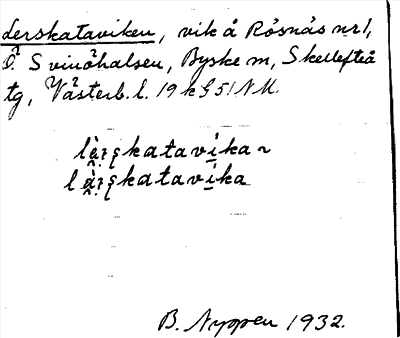 Lerskataviken, vik å Rösnäs nr 1,
Ö. Svinöhalsen, Byske m, Skellefteå
tg, Västerb. l. 19 k § 51 N M.
lä̀rs̨katavi̱ka ~
lä̀rs̨katavi̱ka
B. Nyppen 1932.